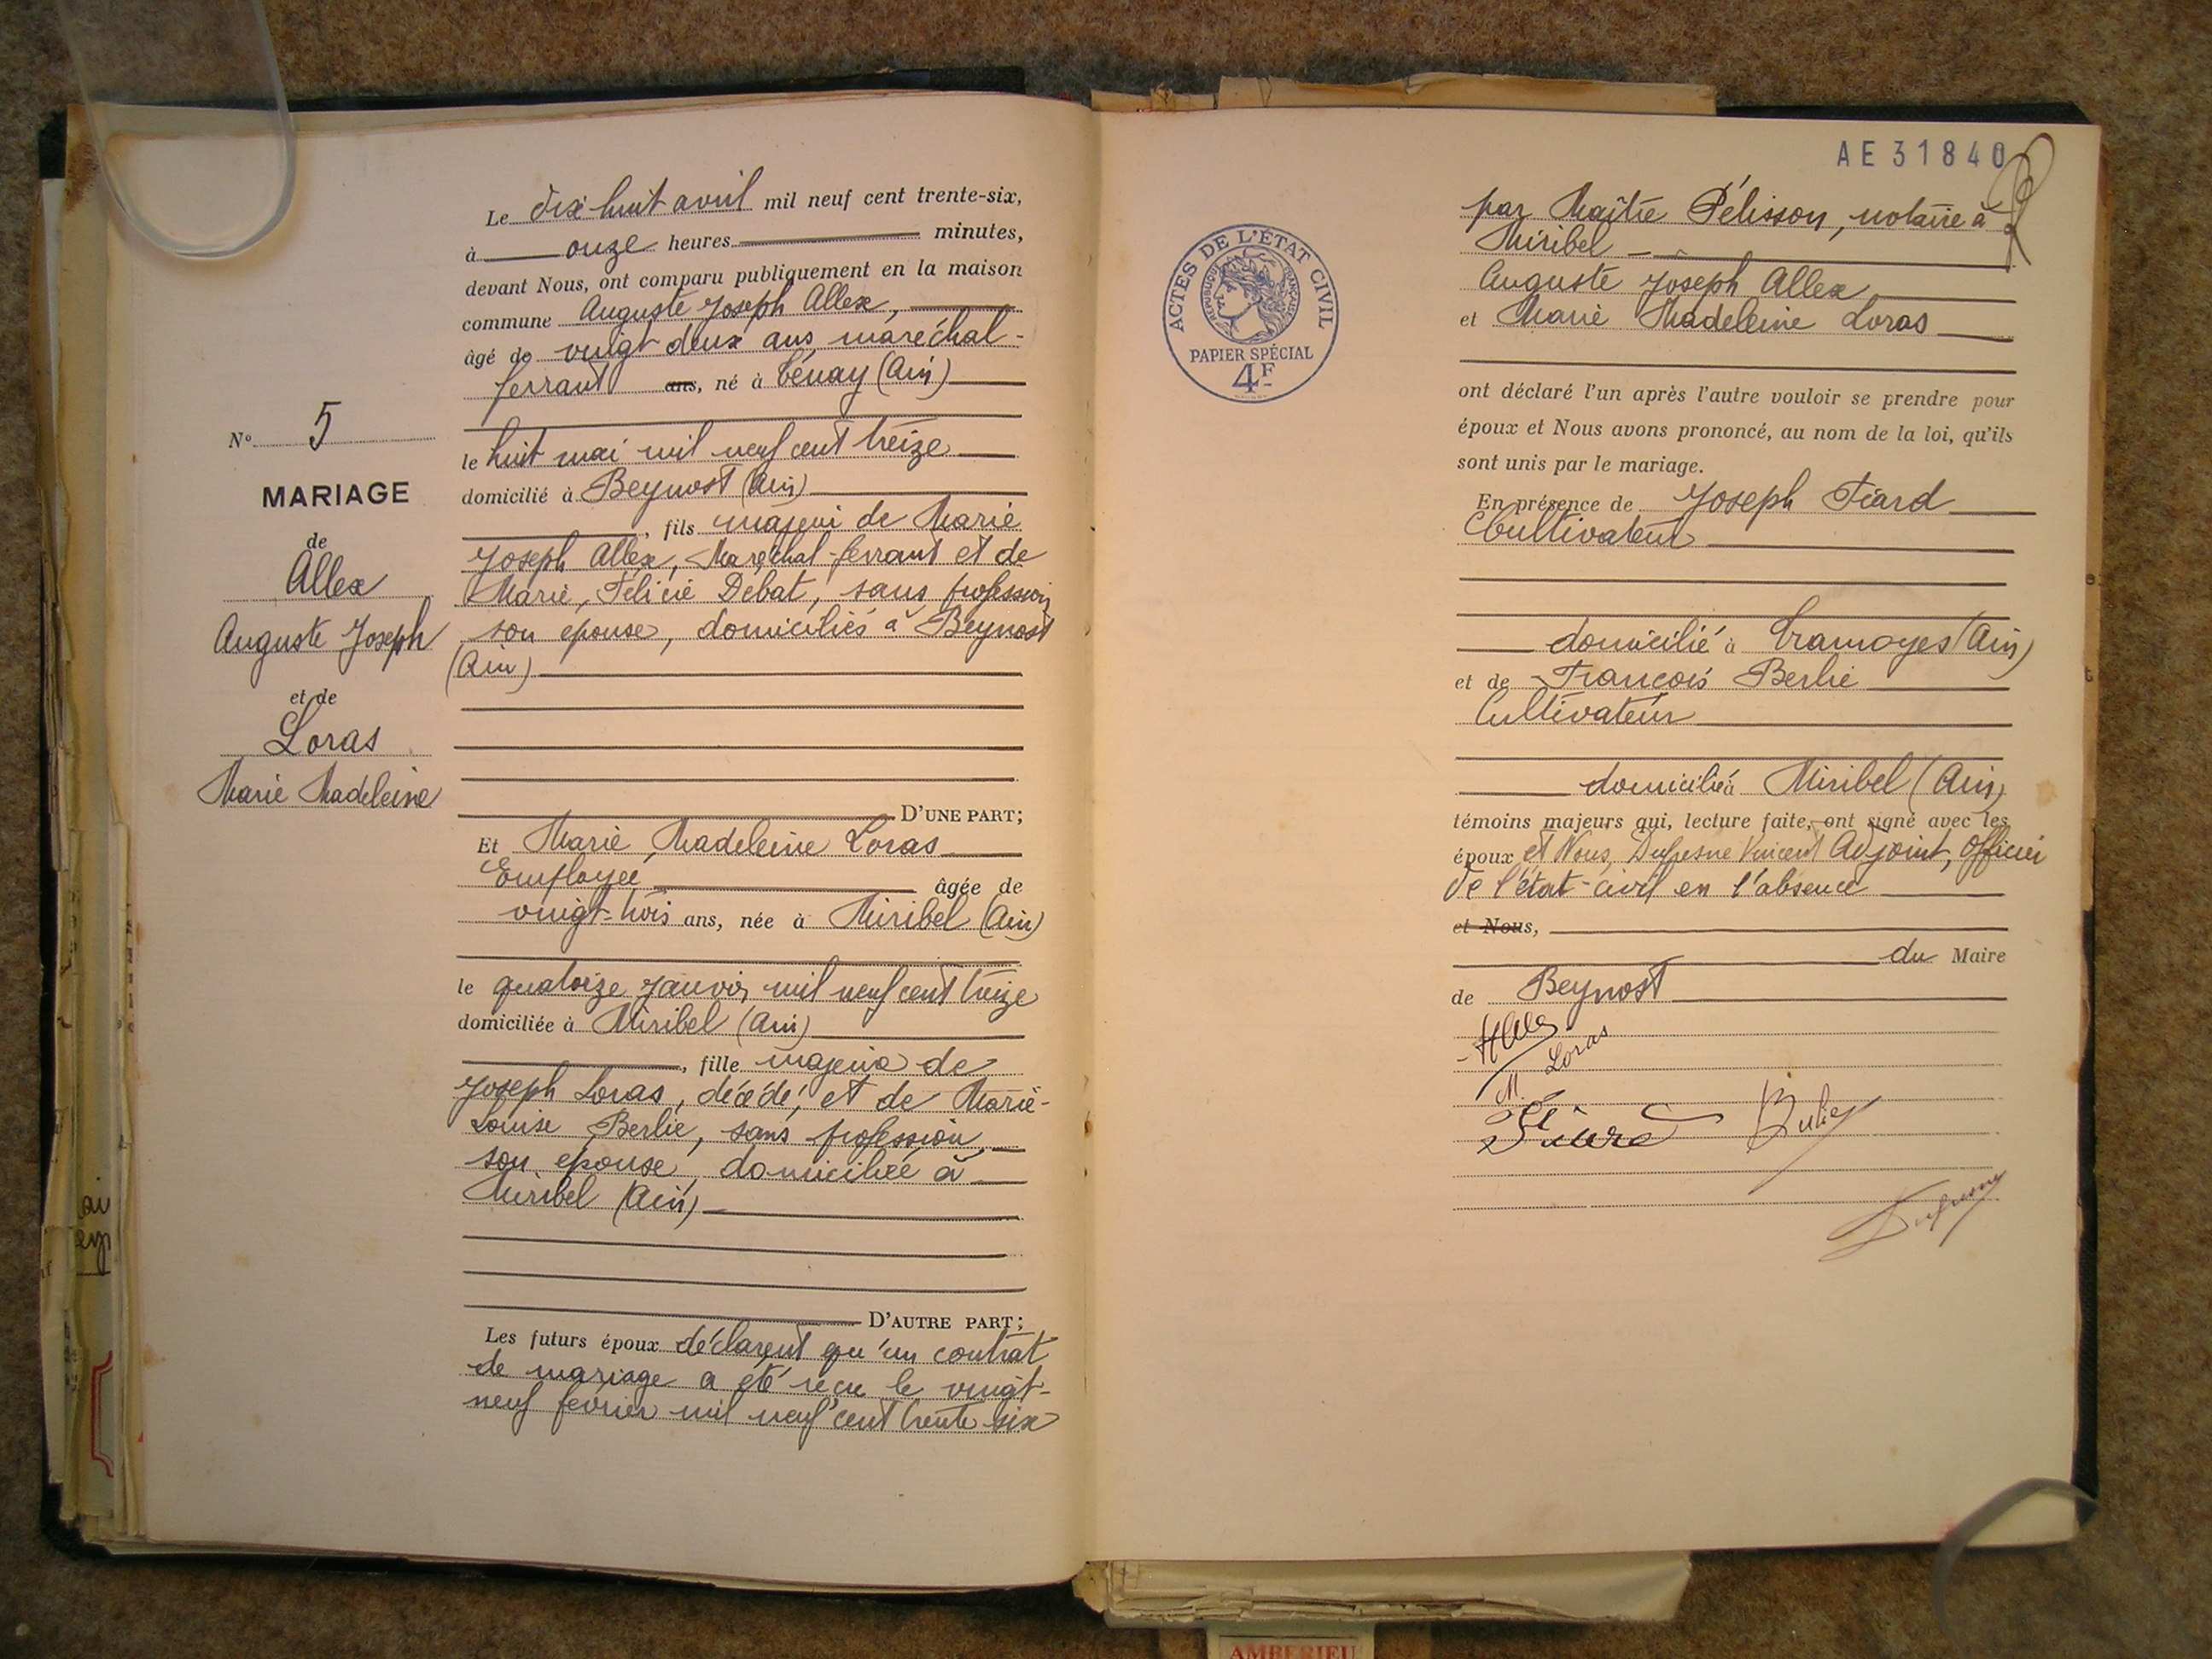 Le dix huit avril mil neuf cent trente-six,
à onze heures minutes,
devant Nous, ont comparu publiquement en la maison
commune Auguste Joseph Allex,
âgé de vingt deux ans, maréchal-
ferrant ans, né à Tenay (Ain)
le huit mai mil neuf cent treize
domicilié à Beynost (Ain)
, fils majeur de Marie
Joseph Allex, Maréchal-ferrant et de
Marie, Félicie Débat, sans profession
son epouse, domiciliés à Beynost
(Ain)
D'UNE PART;
Et Marie Madeleine Loras
Employée âgée de
vingt-trois ans, née à Miribel (Ain)
le quatorze janvier mil neuf cent treize
domiciliée à Miribel (Ain)
, fille majeure de
Joseph Loras, décédé, et de Marie-
Louise Berlie, sans profession
son epouse, domiciliée à
Miribel (Ain)
D'AUTRE PART;
Les futurs époux déclarent qu'un contrat
de mariage a été reçu le vingt-
neuf février mil neuf cent trente six
N° 5
MARIAGE
de
Allex
Auguste Joseph
et de
Loras
Marie Madeleine
AE 31840
ACTES DE L'ÉTAT CIVIL
RÉPUBLIQUE FRANÇAISE
PAPIER SPÉCIAL
4F
par Maître Pélisson, notaire à
Miribel
Auguste Joseph Allex
et Marie Madeleine Loras
ont déclaré l'un après l'autre vouloir se prendre pour
époux et Nous avons prononcé, au nom de la loi, qu'ils
sont unis par le mariage.
En présence de Joseph Tiard
Cultivateur
domicilié à Tramoyes (Ain)
et de François Berlie
Cultivateur
domicilié à Miribel (Ain)
témoins majeurs qui, lecture faite, ont signé avec les
époux et Nous, Dufresne Vincent Adjoint, Officier
de l'état-civil en l'absence
et Nous,
du Maire
de Beynost
Allex
M. Loras
Berlie
Dufresne
AMBERIEU